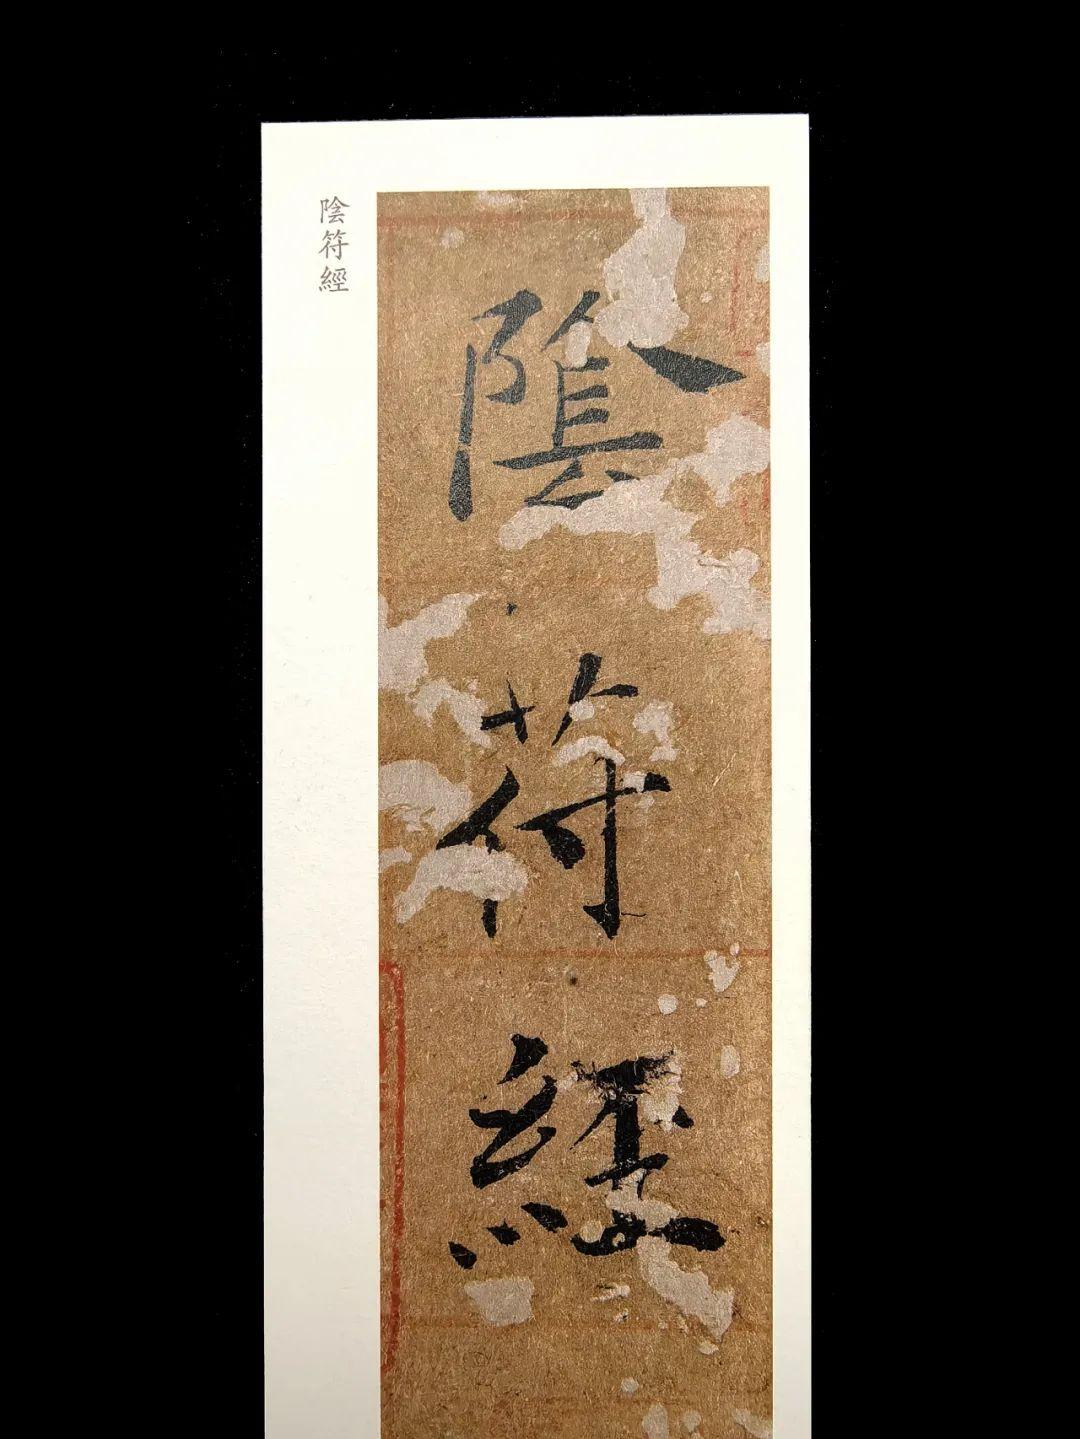 陰符經
陰符經